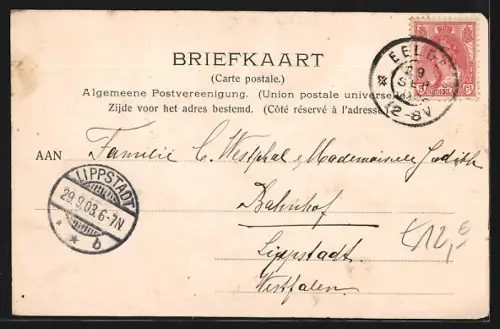 BRIEFKAART
(Carte postale.)
Algemeene Postvereeniging. (Union postale universe
Zijde voor het adres bestemd. (Côté réservé à l'adresse
EELDE
29
12-8V
AAN Familie C. Westphal & Mademoiselle Judith
Bahnhof
Lippstadt.
Westfalen.
LIPPSTADT
29.9.03.6-7N
* * b
€12,-